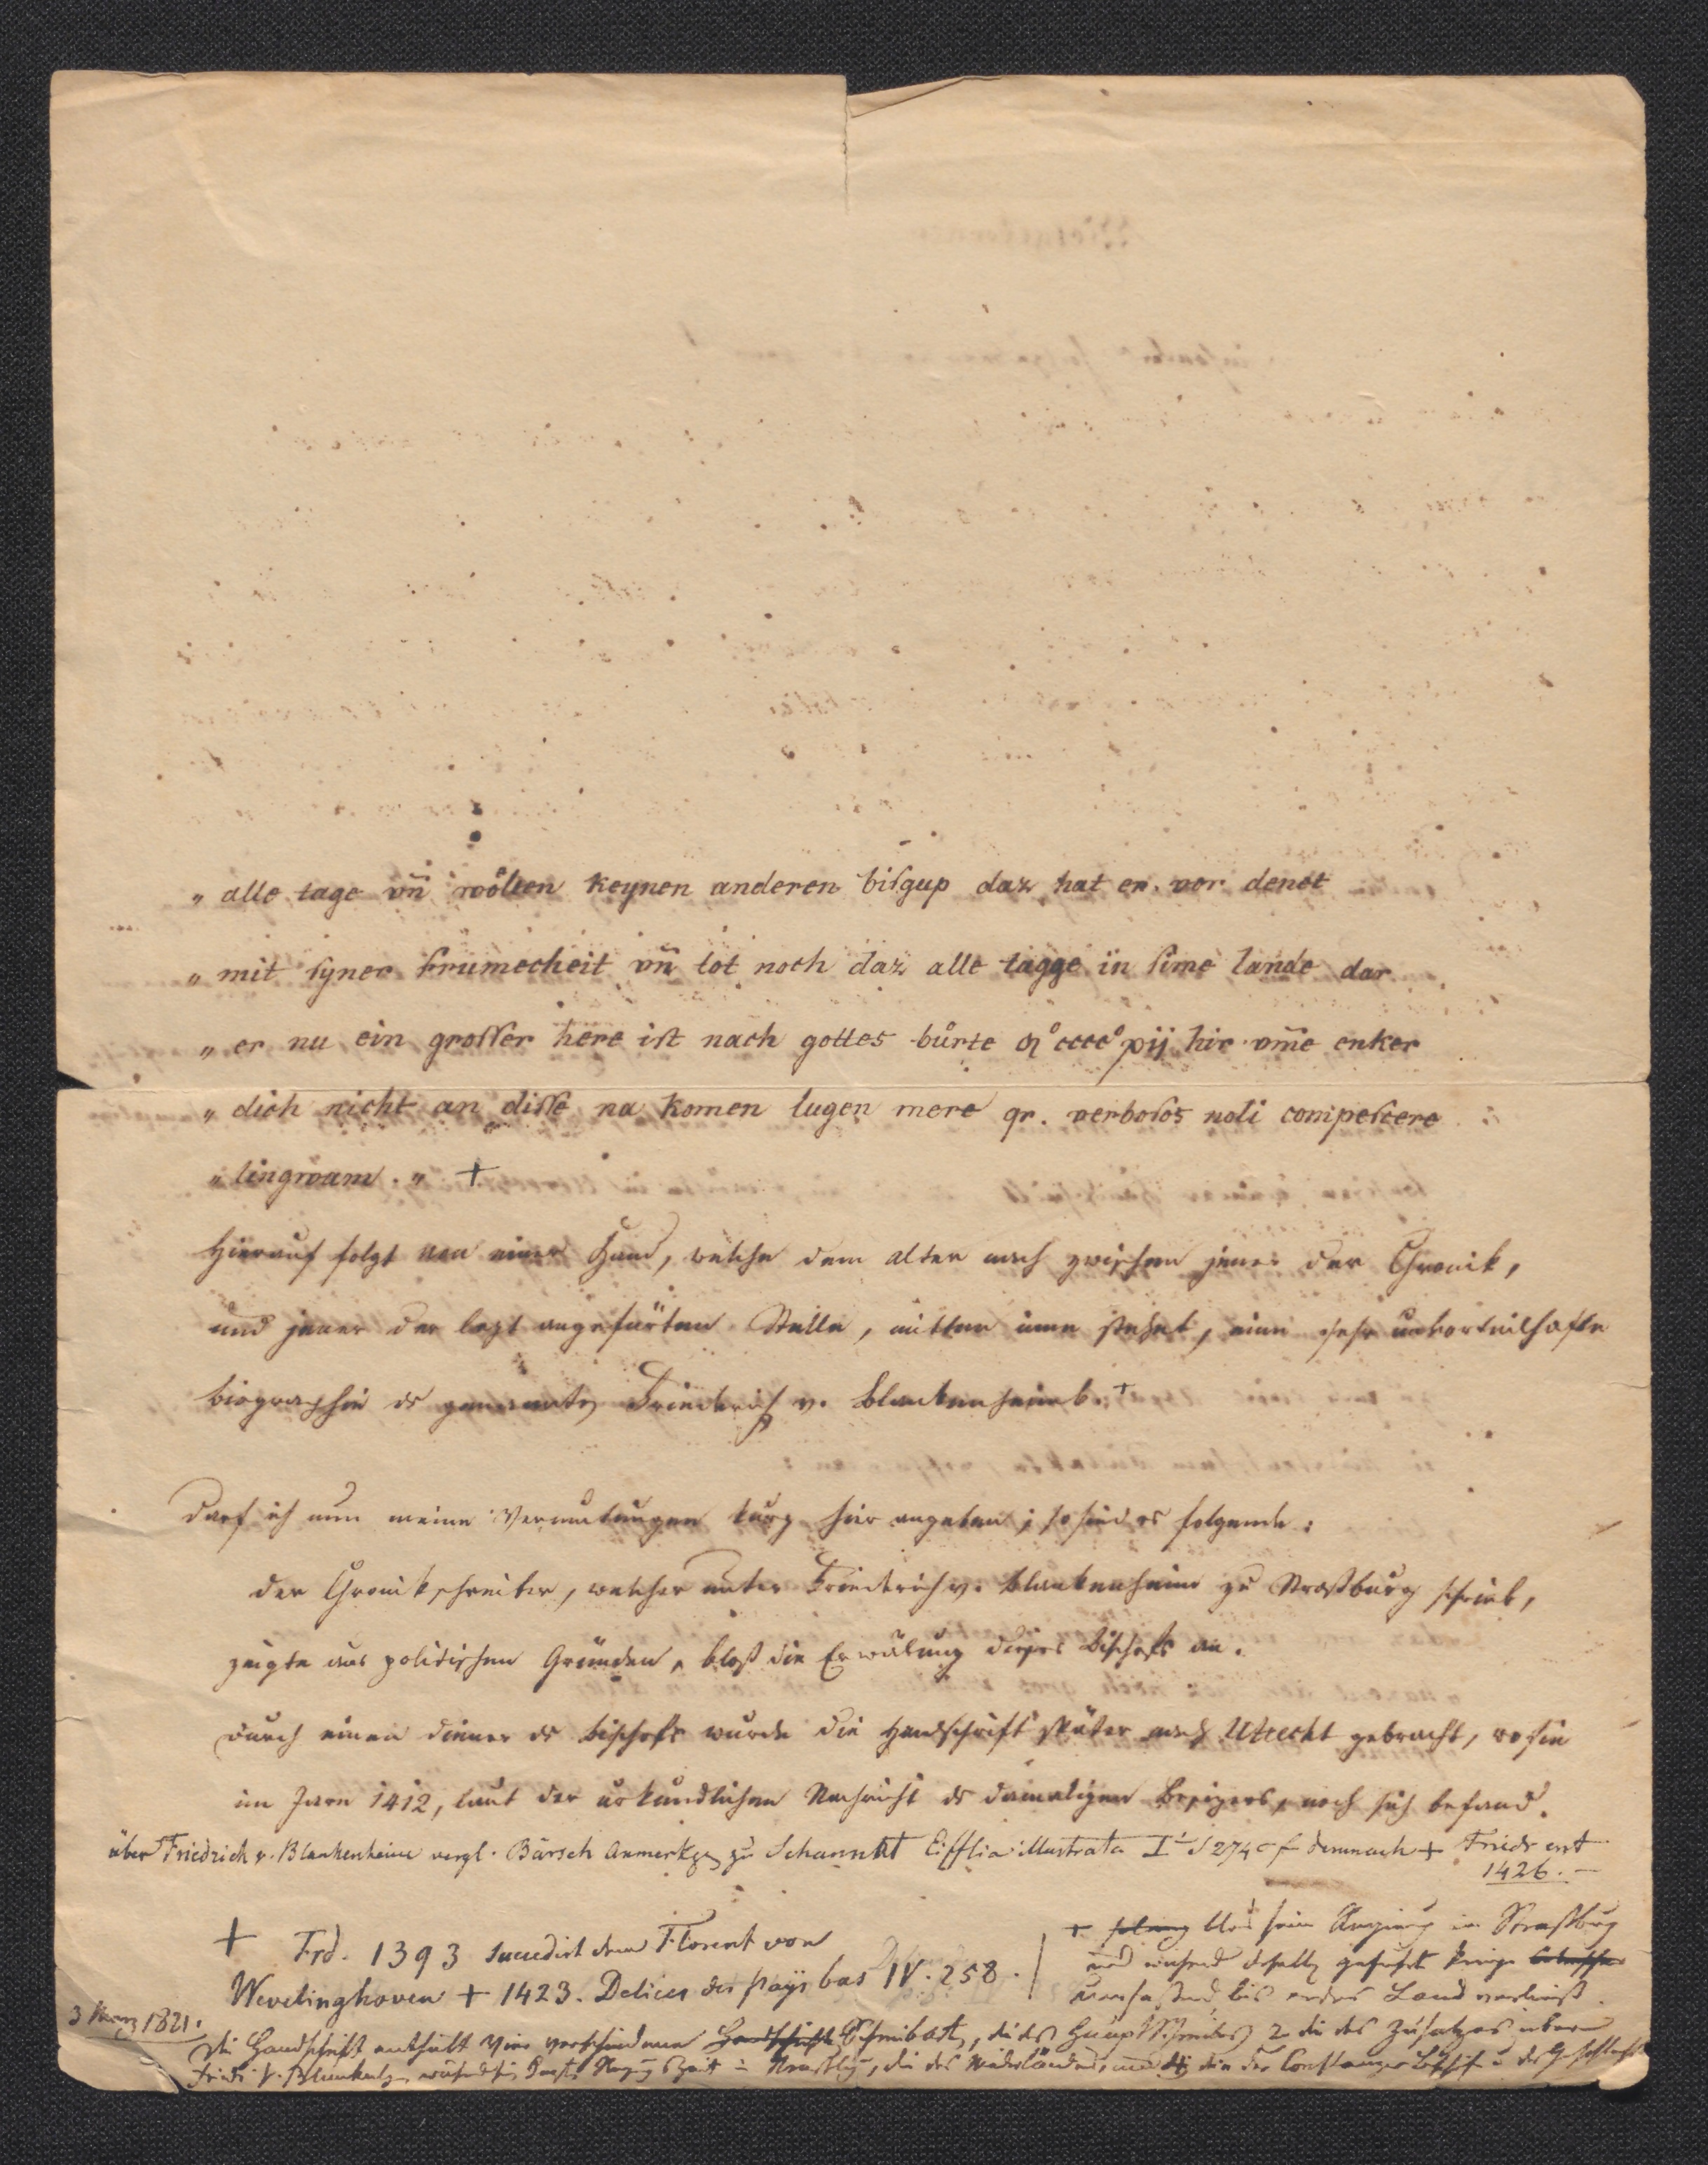 „ alle tage vn̄ wolten keynen anderen bisgup daz hat er vor denet
„ mit syner frumecheit vn̄ tot noch daz alle tagge in sime lande dar
„ er nu ein grosser here ist nach gottes bůrte cccc xij hir vm̄e enker
„ dich nicht an disse na komen lugen mere qr. verbosos noli compescere
„ lingwam. „ +
Hierauf folgt von einer Hand, welche dem alter nach zwischen jener der Chronik,
und jener der lezt angefürten Stelle, mitten inne stehet, eine sehr unvorteilhafte
biographie ds genannten Friederich v. blankenheimb. +
Darf ich nun meine Vermutungen kurz hier angeben; so sind es folgende:
der Chronikschreiber, welcher unter Friederich v. blankenheim zu Straßburg schrieb,
zeigte aus politischen Gründen, bloß die Erwälung dieses bischofs an.
durch einen diener ds bischofs wurde die Handschrift später nach Utrecht gebracht, wo sie
im Jare 1412, laut der urkundlichen Nachricht ds damaligen besizers, noch sich befand.
über Friedrich v. Blankenheim vergl. Bärsch Anmerkgn zu Schannat Eifflia illustrata I S 274 demnach + Friedr erst
1426. –
+ Frd. 1393 succedirt dem Florent von
Wevelinghoven + 1423. Delices des pays bas IV. 258.
+ seine Regierung in Straßburg
und während deßelben geführte Kriege
umfassend, bis er das Land verließ.
3 März 1821.
die Handschrift enthält vier verschiedene Handschrift Schreibart, die des Hauptschreibers 2 die des Zusatzes über
Fried. v. Blankenh, die des Niederländers, und die der Constanzer